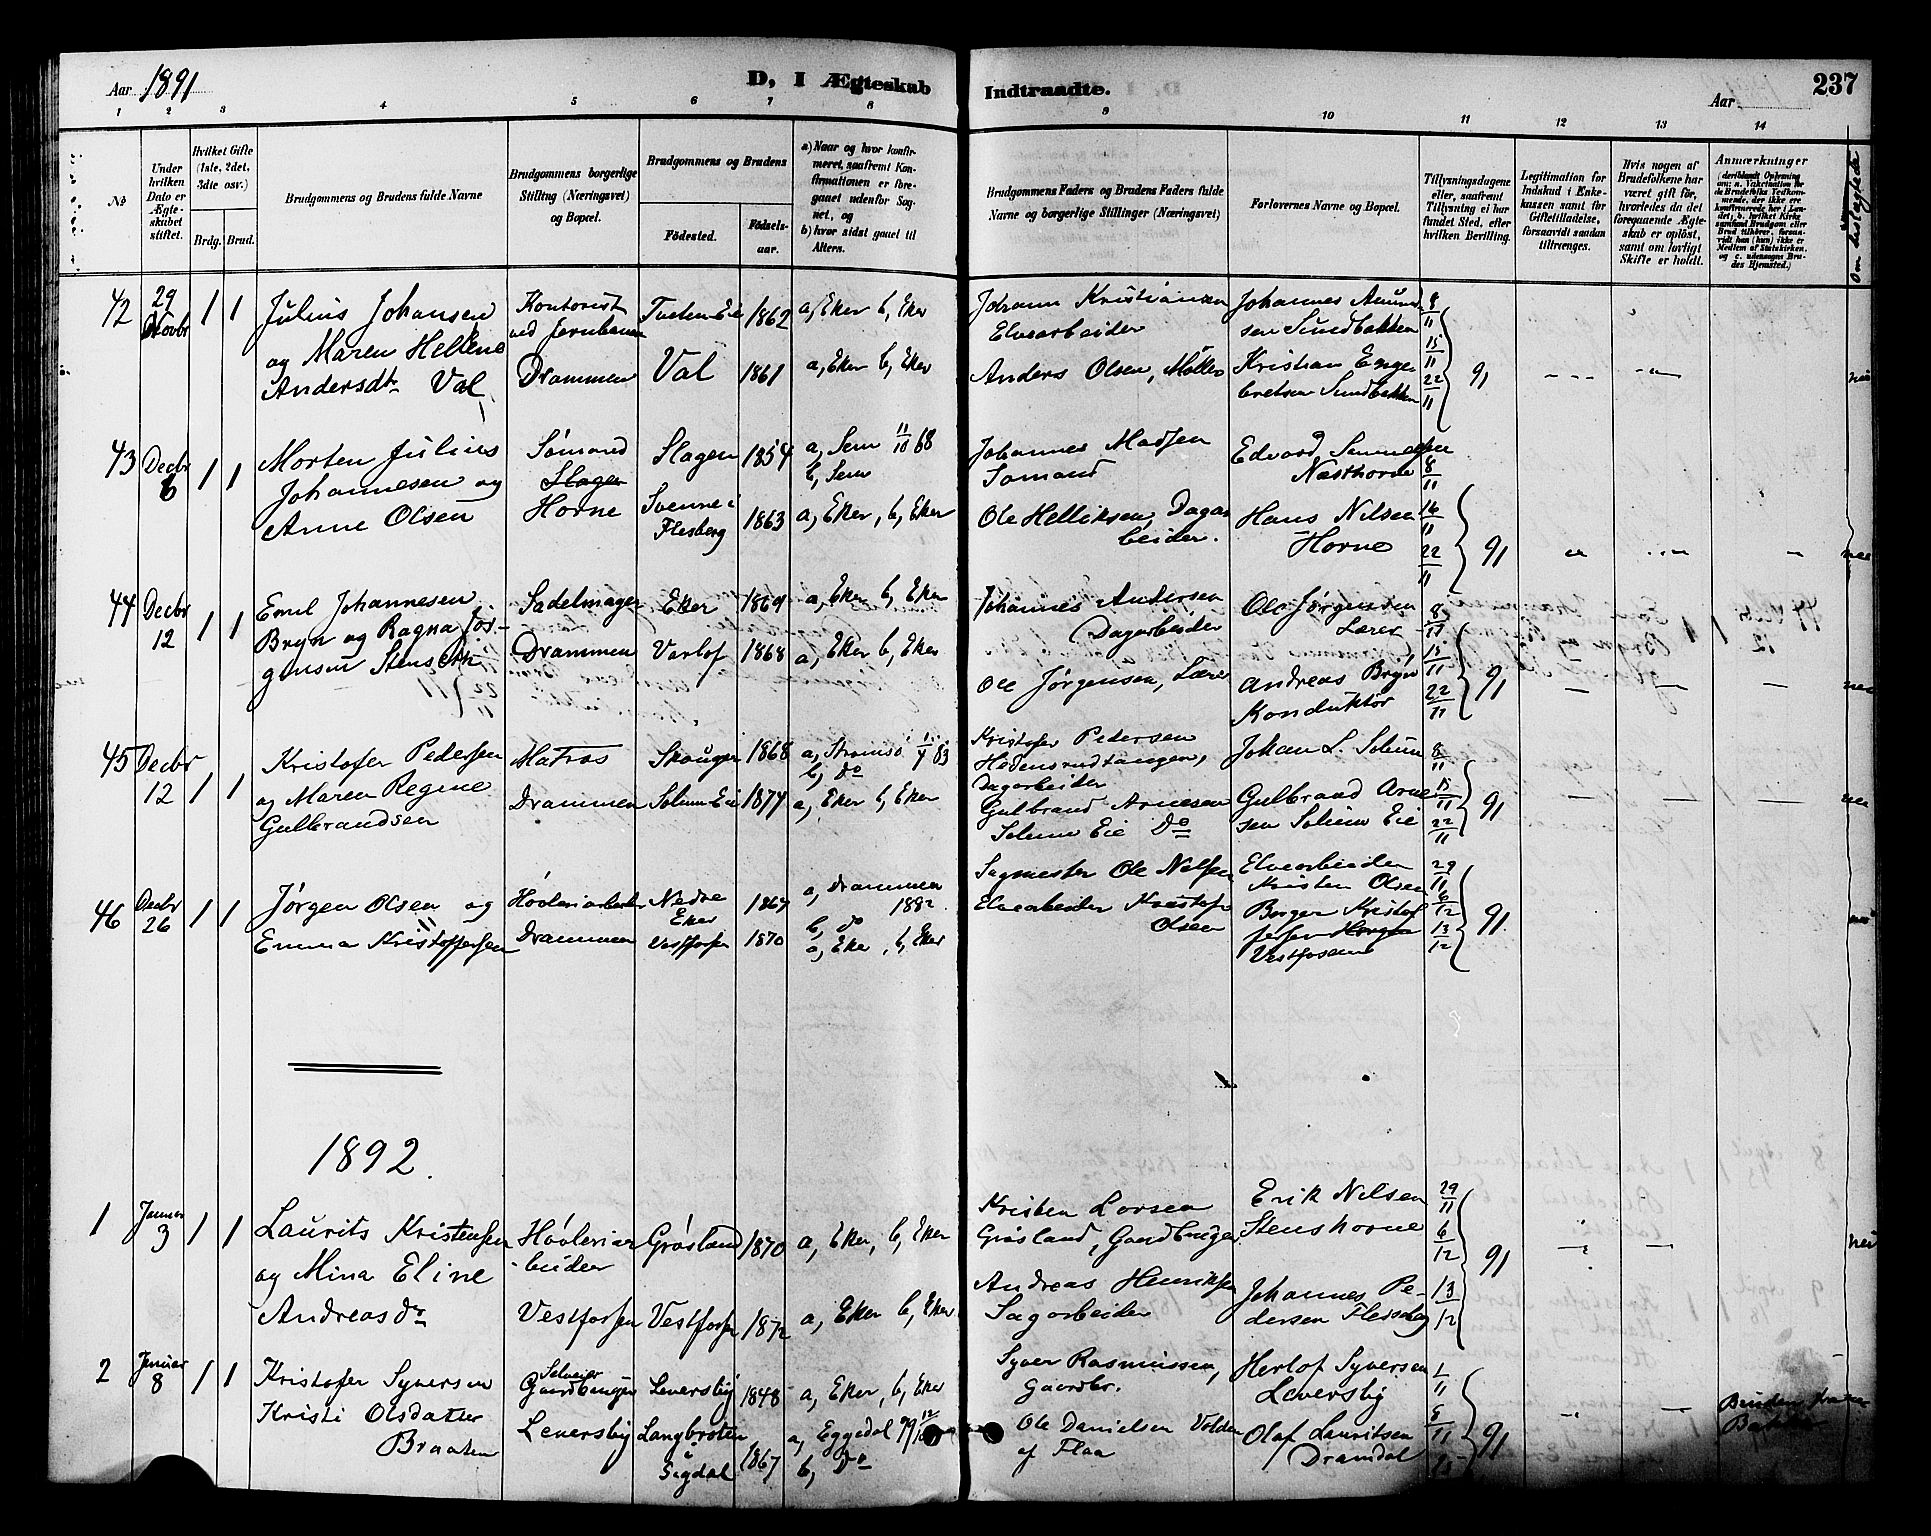 Aar 1891
D, I Ægteskab
Indtraadte.
Aar
237
1 2 3 4 5 6 7 8 9 10 11 12 13 14
No
Under hvilken Dato er Ægteskabet stiftet.
Hvilket Gifte (1ste, 2det, 3die osv.)
Brdg. Brud.
Brudgommens og Brudens fulde Navne
Brudgommens borgerlige Stilling (Næringsvei) og Bopæl.
Brudgommens og Brudens
Fødested.
Fødselsaar.
a) Naar og hvor konfirmeret, saafremt Konfirmationen er foregaaet udenfor Sognet, og
b) hvor sidst gaaet til Alters.
Brudgommens Faders og Brudens Faders fulde Navne og borgerlige Stillinger (Næringsvei)
Forlovernes Navne og Bopæl.
Tillysningsdagene eller, saafremt Tillysning ei har fundet Sted, efter hvilken Bevilling.
Legitimation for Indskud i Enkekassen samt for Giftetilladelse, forsaavidt saadan tiltrænges.
Hvis nogen af Brudefolkene har været gift før, hvorledes da det foregaaende Ægteskab er opløst, samt om lovligt Skifte er holdt.
Anmærkninger
42 29 Novbr 1 1
Julius Johansen
og Maren Hellene
Andersdtr Val
Kontorist
ved Jernbanen
Drammen
Tveten Eie 1862 a, Eker b, Eker
Val 1861 a, Eker b, Eker
Johann Kristiansen
Elvearbeider
Anders Olsen, Møller
Johannes Amundsen Sundbakken
Kristian Engebretsen Sundbakken
8/11 15/11 22/11 91
nei
43 Decbr 6 1 1
Morten Julius
Johannesen og
Anne Olsen
Sømand
Slagen
Horne
Slagen 1854 a, Sem 11/10 68
b, Sem
Svenne i
Flesberg 1863 a, Eker, b, Eker
Johannes Madsen
Sømand
Ole Helliksen, Dagarbeider.
Edvard
Næsthorne
Hans Nilsen
Horne
8/11 16/11 22/11 91
44 Decbr 12 1 1
Emil Johannesen
Bryn og Ragna Jørgensen
Sadelmager
Drammen
Eker 1869 a, Eker b, Eker
Varlof 1868 a, Eker b, Eker
Johannes Andersen
Dagarbeider
Ole Jørgensen, Lærer
Ole Jørgensen
Lærer
Andreas Bryn
Konduktør
8/11 15/11 22/11 91
45 Decbr 12 1 1
Kristofer Pedersen
og Maren Regine
Gulbrandsen
Matros
Drammen
Skouger 1868 a, Strømsø 1/4 83
b, Do
Solum Eie 1874 a, Eker b, Eker
Kristofer Pedersen
Hedensrudtangen,
Dagarbeider
Gulbrand Arnesen
Solum Eie Do
Johan L. Solum
Gulbrand Arnesen Solum Eie
8/11 15/11 22/11 91
46 Decbr 26 1 1
Jørgen Olsen og
Emma Kristoffersen
Høvleriarbeider
Drammen
Nedre
Eker 1867 a, Drammen
1882
b, do
Vestfossen 1870 a, Eker, b, Eker
Sagmester Ole Nilsen
Elvearbeider Kristofer
Olsen
Elvearbeider
Kristen Olsen
Borger Kristoffersen Horgen
Vestfossen
29/11 6/12 13/12 91
1892.
1 Januar 3 1 1
Laurits Kristensen
og Mina Eline
Andreasdr
Høvleriarbeider
Vestfossen
Grøsland 1870 a, Eker, b, Eker
Vestfossen 1872 a, Eker b, Eker
Kristen Larsen
Grøsland, Gaardbruger
Andreas Henriksen
Sagarbeider
Erik Nilsen
Stenshorne
Johannes Pedersen Flesseberg
29/11 6/12 13/12 91
nei
2 Januar 8 1 1
Kristofer Syversen
Kristi Olsdatter
Braaten
Selveier
Gaardbruger
Leversby
Leversby 1848 a, Eker, b, Eker
Langbraten
i
Sigdal 1867 a, Eggedal 12/10 79
b, Do
Syver Rasmussen,
Gaardbr.
Ole Danielsen Volden
af Flaa
Herlof Syversen
Leversby
Olaf Lauritsen
Dramdal
1/11 8/11 91
Bruden fra